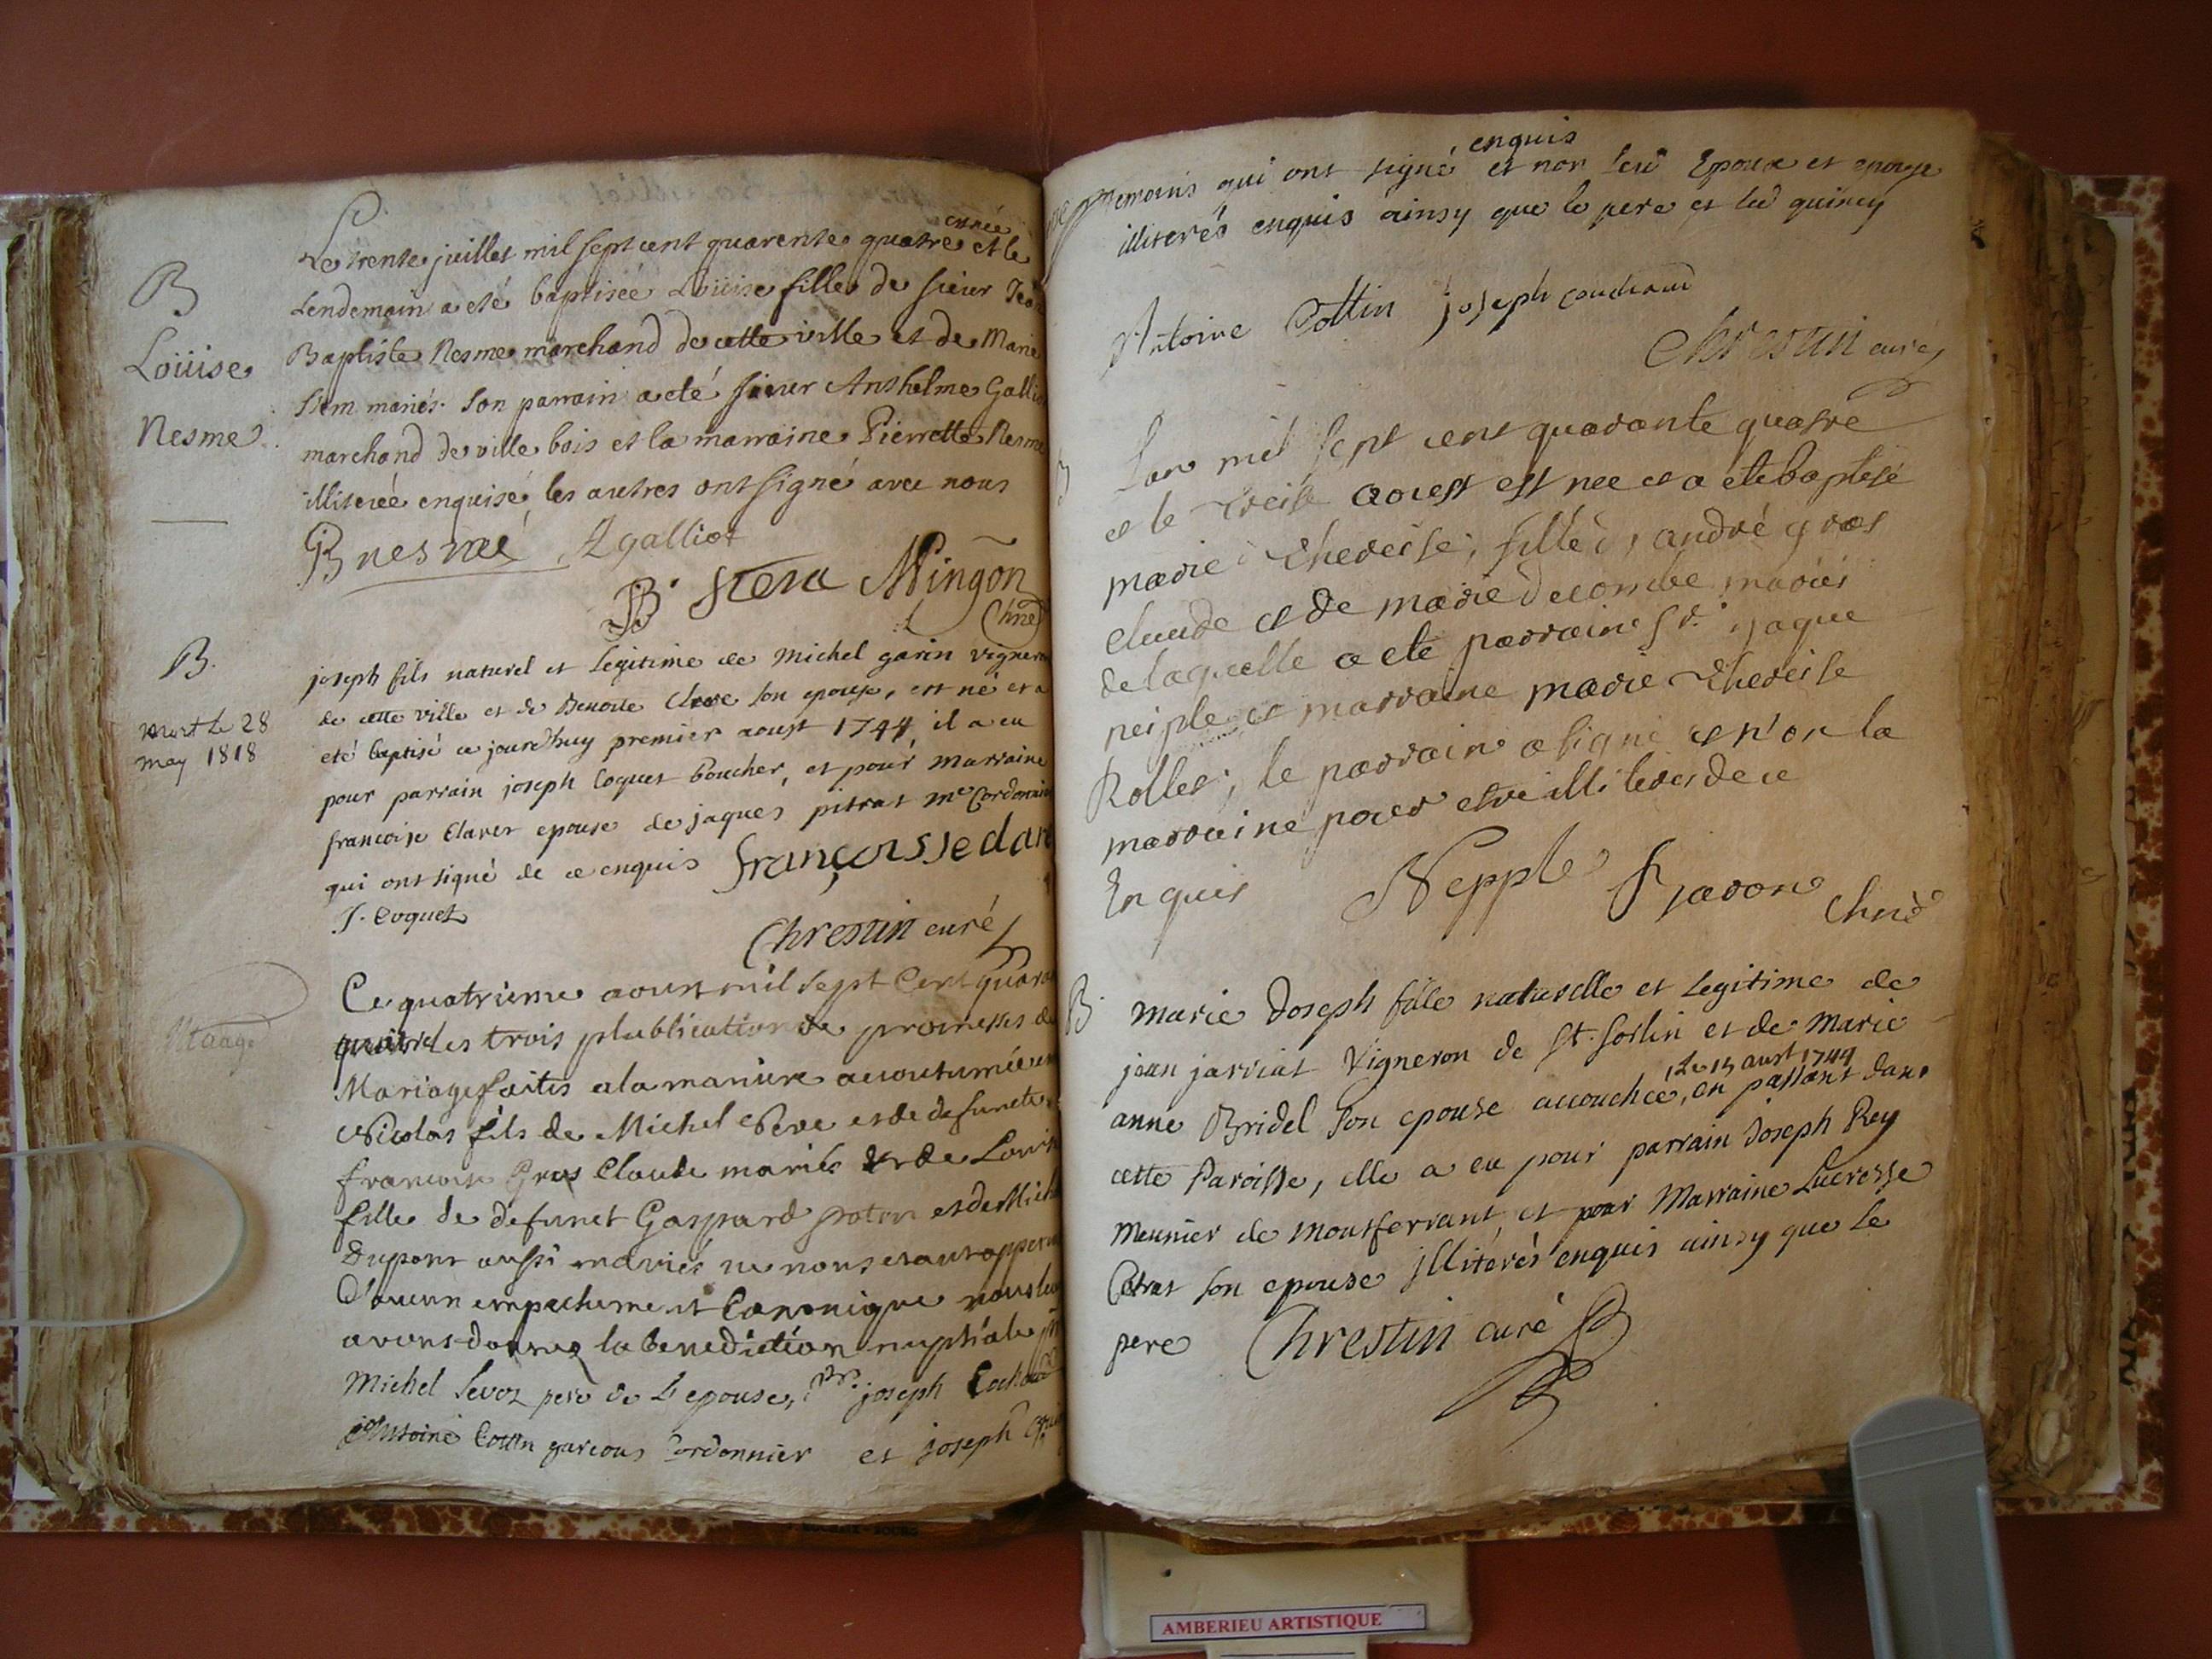 B
Loüise
Nesme
Le trente juillet mil sept cent quarente quatre et le
Lendemain a eté baptisée Loüise fille de sieur Jean
Baptiste Nesme marchand de cette ville et de Marie
mariés. Son parrain a eté sieur Anthelme Gallio
marchand de ville bois et la marraine Pierrette Nesme
illiterée enquise, les autres ont signé avec nous
B nesmé Agalliot
Mingon
B.
Mort le 28
may 1818
joseph fils naturel et Legitime de Michel garin vigneron
de cette ville et de Benoite son epouse, est né et a
eté baptisé ce jourdhuy premier aoust 1744, il a eu
pour parrain joseph Coquet boucher, et pour marraine
francoise Claret epouse de jaques pitrat me Cordonnier
qui ont signé de ce enquis
J. Coquet
Chrestin curé
Ce quatrieme aoust mil sept Cent quara
quatre les trois plublication de promesses de
Mariage faites a la maniere acoutumée en
Nicolas fils de Michel et de defuncte
francoise Gros Claude mariés et de Louise
fille de defunct Gaspard et de Mich
Dupont aussi mariés ne nous etant opperu
D'aucun empechement Canonique nous leur
avons donnez la benediction nuptiale
Michel pere de L'epouse, joseph
Antoine Cottin garcons Cordonnier et joseph
temoins qui ont signé enquis et non Epoux et epouse
illiterés enquis ainsy que le pere et quincy
Antoine Cottin joseph
Chrestin curé
B
Lan mil sept cent quarante quatre
et le treise aouest est nee et a ete baptisé
marie thereise, fille d, andré gros
claude et de marie decombe mariés
de laquelle a ete parrain sr. jaque
neiple et marraine marie thereise
Rollet; le parrain a signé et n'on la
marraine pour estre illiteres de ce
En quis Nepple
B.
Marie Joseph fille naturelle et Legitime de
jean jarriat Vigneron de St. Sorlin et de Marie
anne Bridel son epouse accouchée, Le 15 aust 1744 en passant dans
cette Paroisse, elle a eu pour parrain Joseph Rey
Meunier de Montferrant, et pour Marraine Lucresse
son epouse illiterés enquis ainsy que le
pere Chrestin curé
AMBERIEU ARTISTIQUE